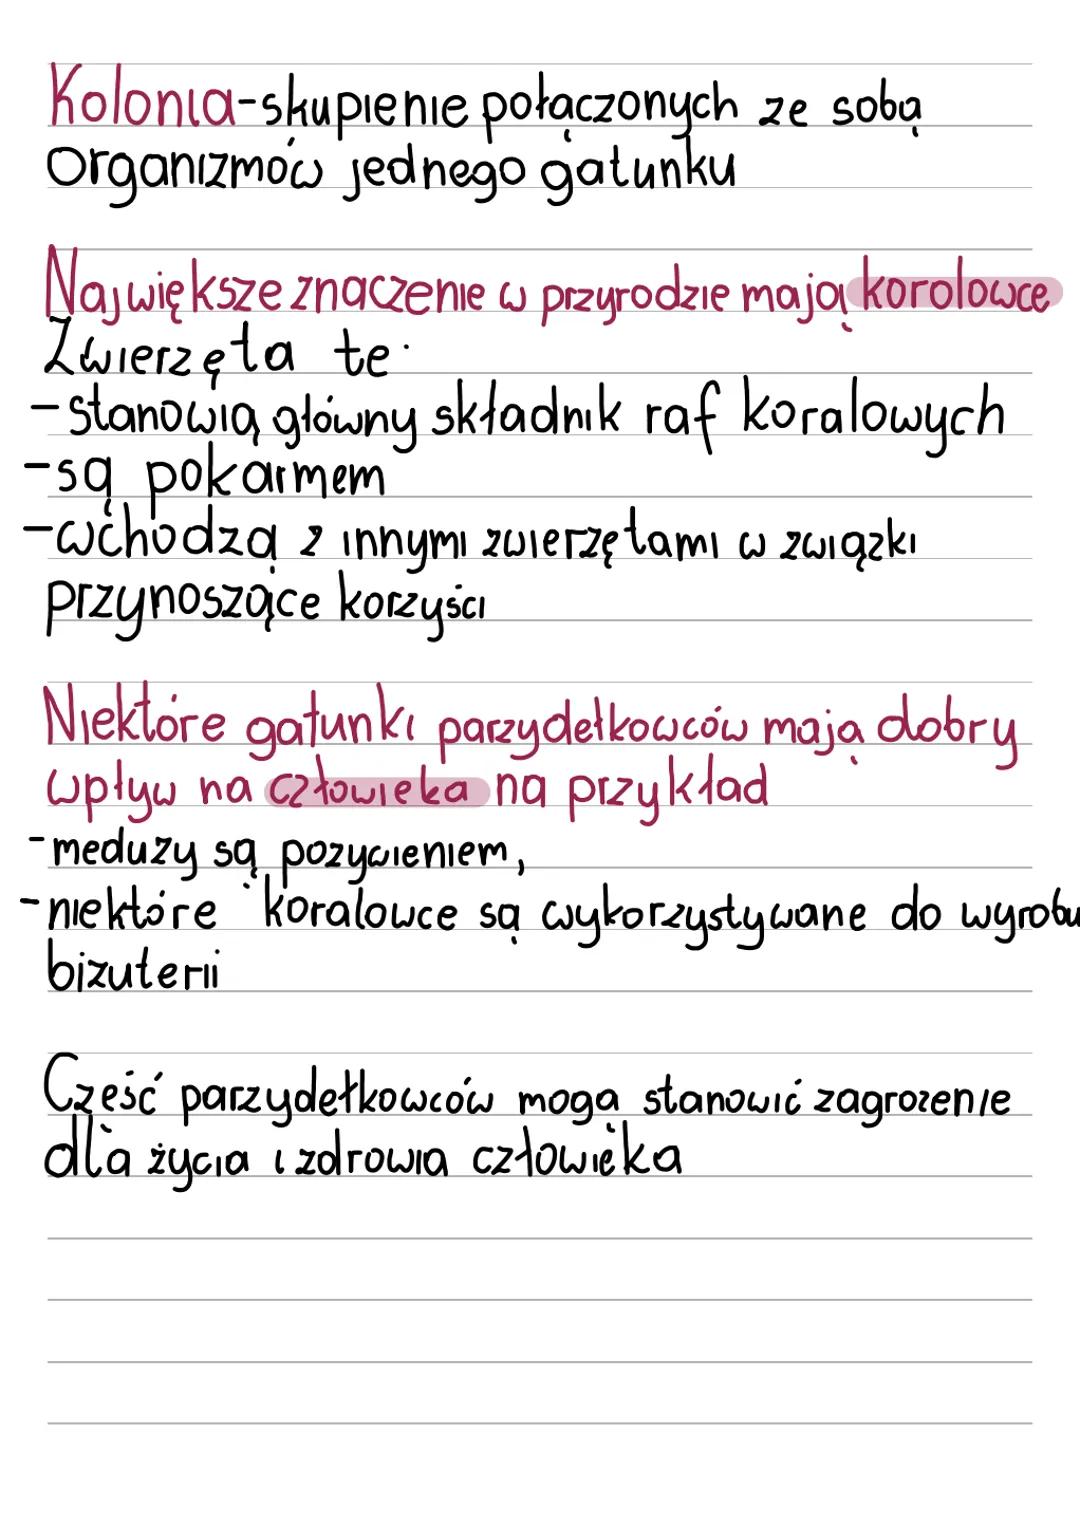 Kolonia-skupienie połączonych ze sobą
Organizmów jednego gatunku
Największe znaczenie w przyrodzie mają korolowce
Zwierzęta te:
-stanowią główny składnik raf koralowych
-są pokarmem
-wchodzą z innymi zwierzętami w związki
przynoszące korzyści
Niektóre gatunki parzydełkowców mają dobry
wpływ na człowieka na przykład
-meduzy są pozywieniem,
-niektóre koralowce są wykorzystywane do wyrobu
bizuterii
Część parzydełkowców mogą stanowić zagrozenie
dla życia i zdrowia człowieka